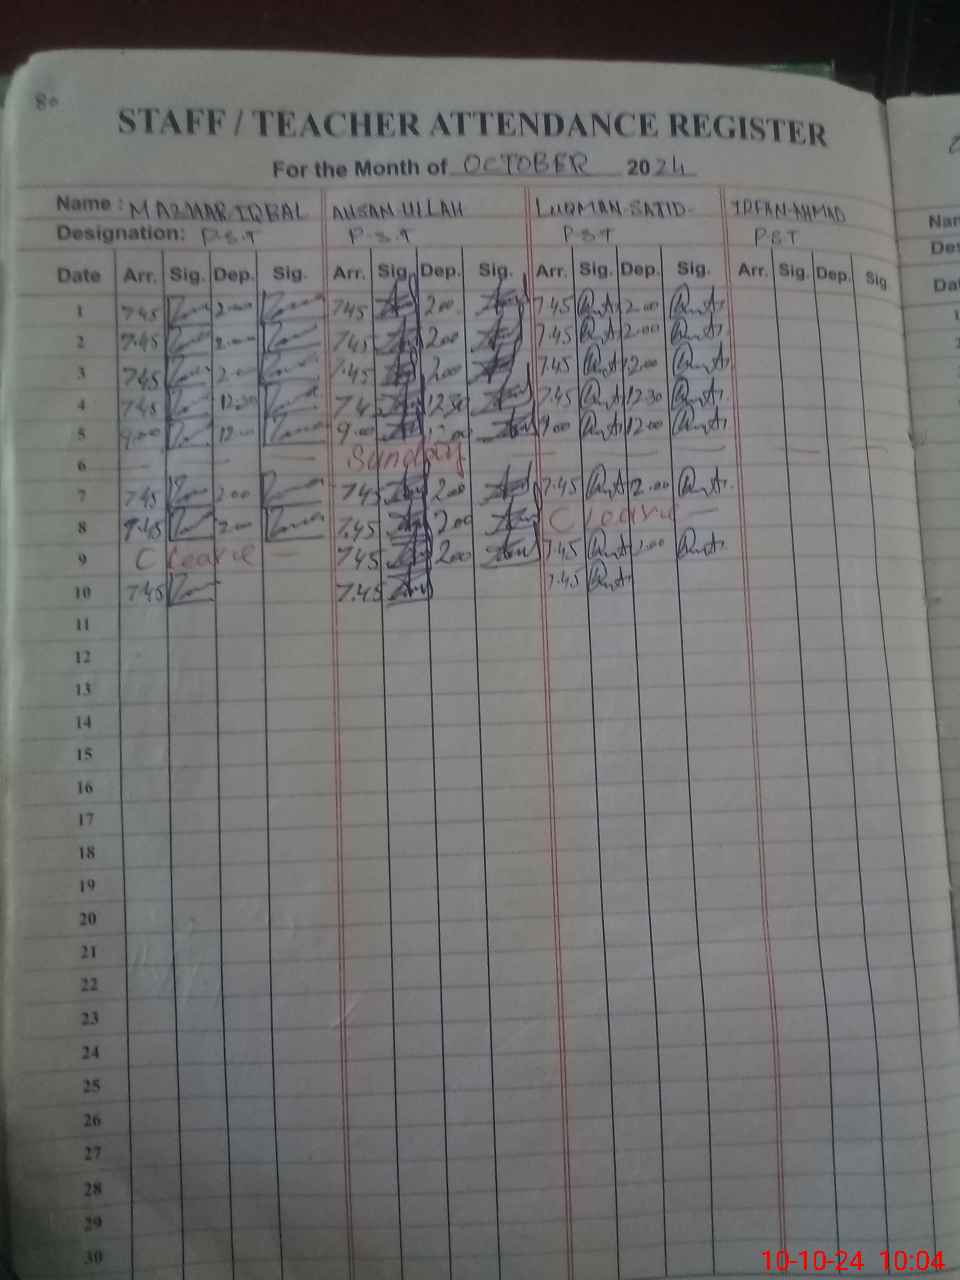 80
STAFF / TEACHER ATTENDANCE REGISTER
For the Month of OCTOBER 2024
Name : MAZHAR-IQBAL AHSAN ULLAH LUQMAN-SAJID- IRFAN-AHMAD
Designation: P.S.T P.S.T P.S.T PST
Date Arr. Sig. Dep. Sig. Arr. Sig. Dep. Sig. Arr. Sig. Dep. Sig. Arr. Sig. Dep. Sig
1 7.45 2.00 7.45 2.00 7.45 2.00
2 7.45 2.00 7.45 2.00 7.45 2.00
3 7.45 2.00 7.45 2.00 7.45 12.00
4 7.45 12.30 7.4 12.30 7.45 12.30
5 9.00 12.00 9.00 9.00 12.00
6 — — — Sunday — — — — —
7 7.45 2.00 7.45 2.00 7.45 2.00
8 7.45 2.00 7.45 2.00 C leave —
9 C leave — 7.45 2.00 7.45 2.00
10 7.45 7.45 7.45
11
12
13
14
15
16
17
18
19
20
21
22
23
24
25
26
27
28
29
30
Nar
Des
Da
10-10-24 10:04